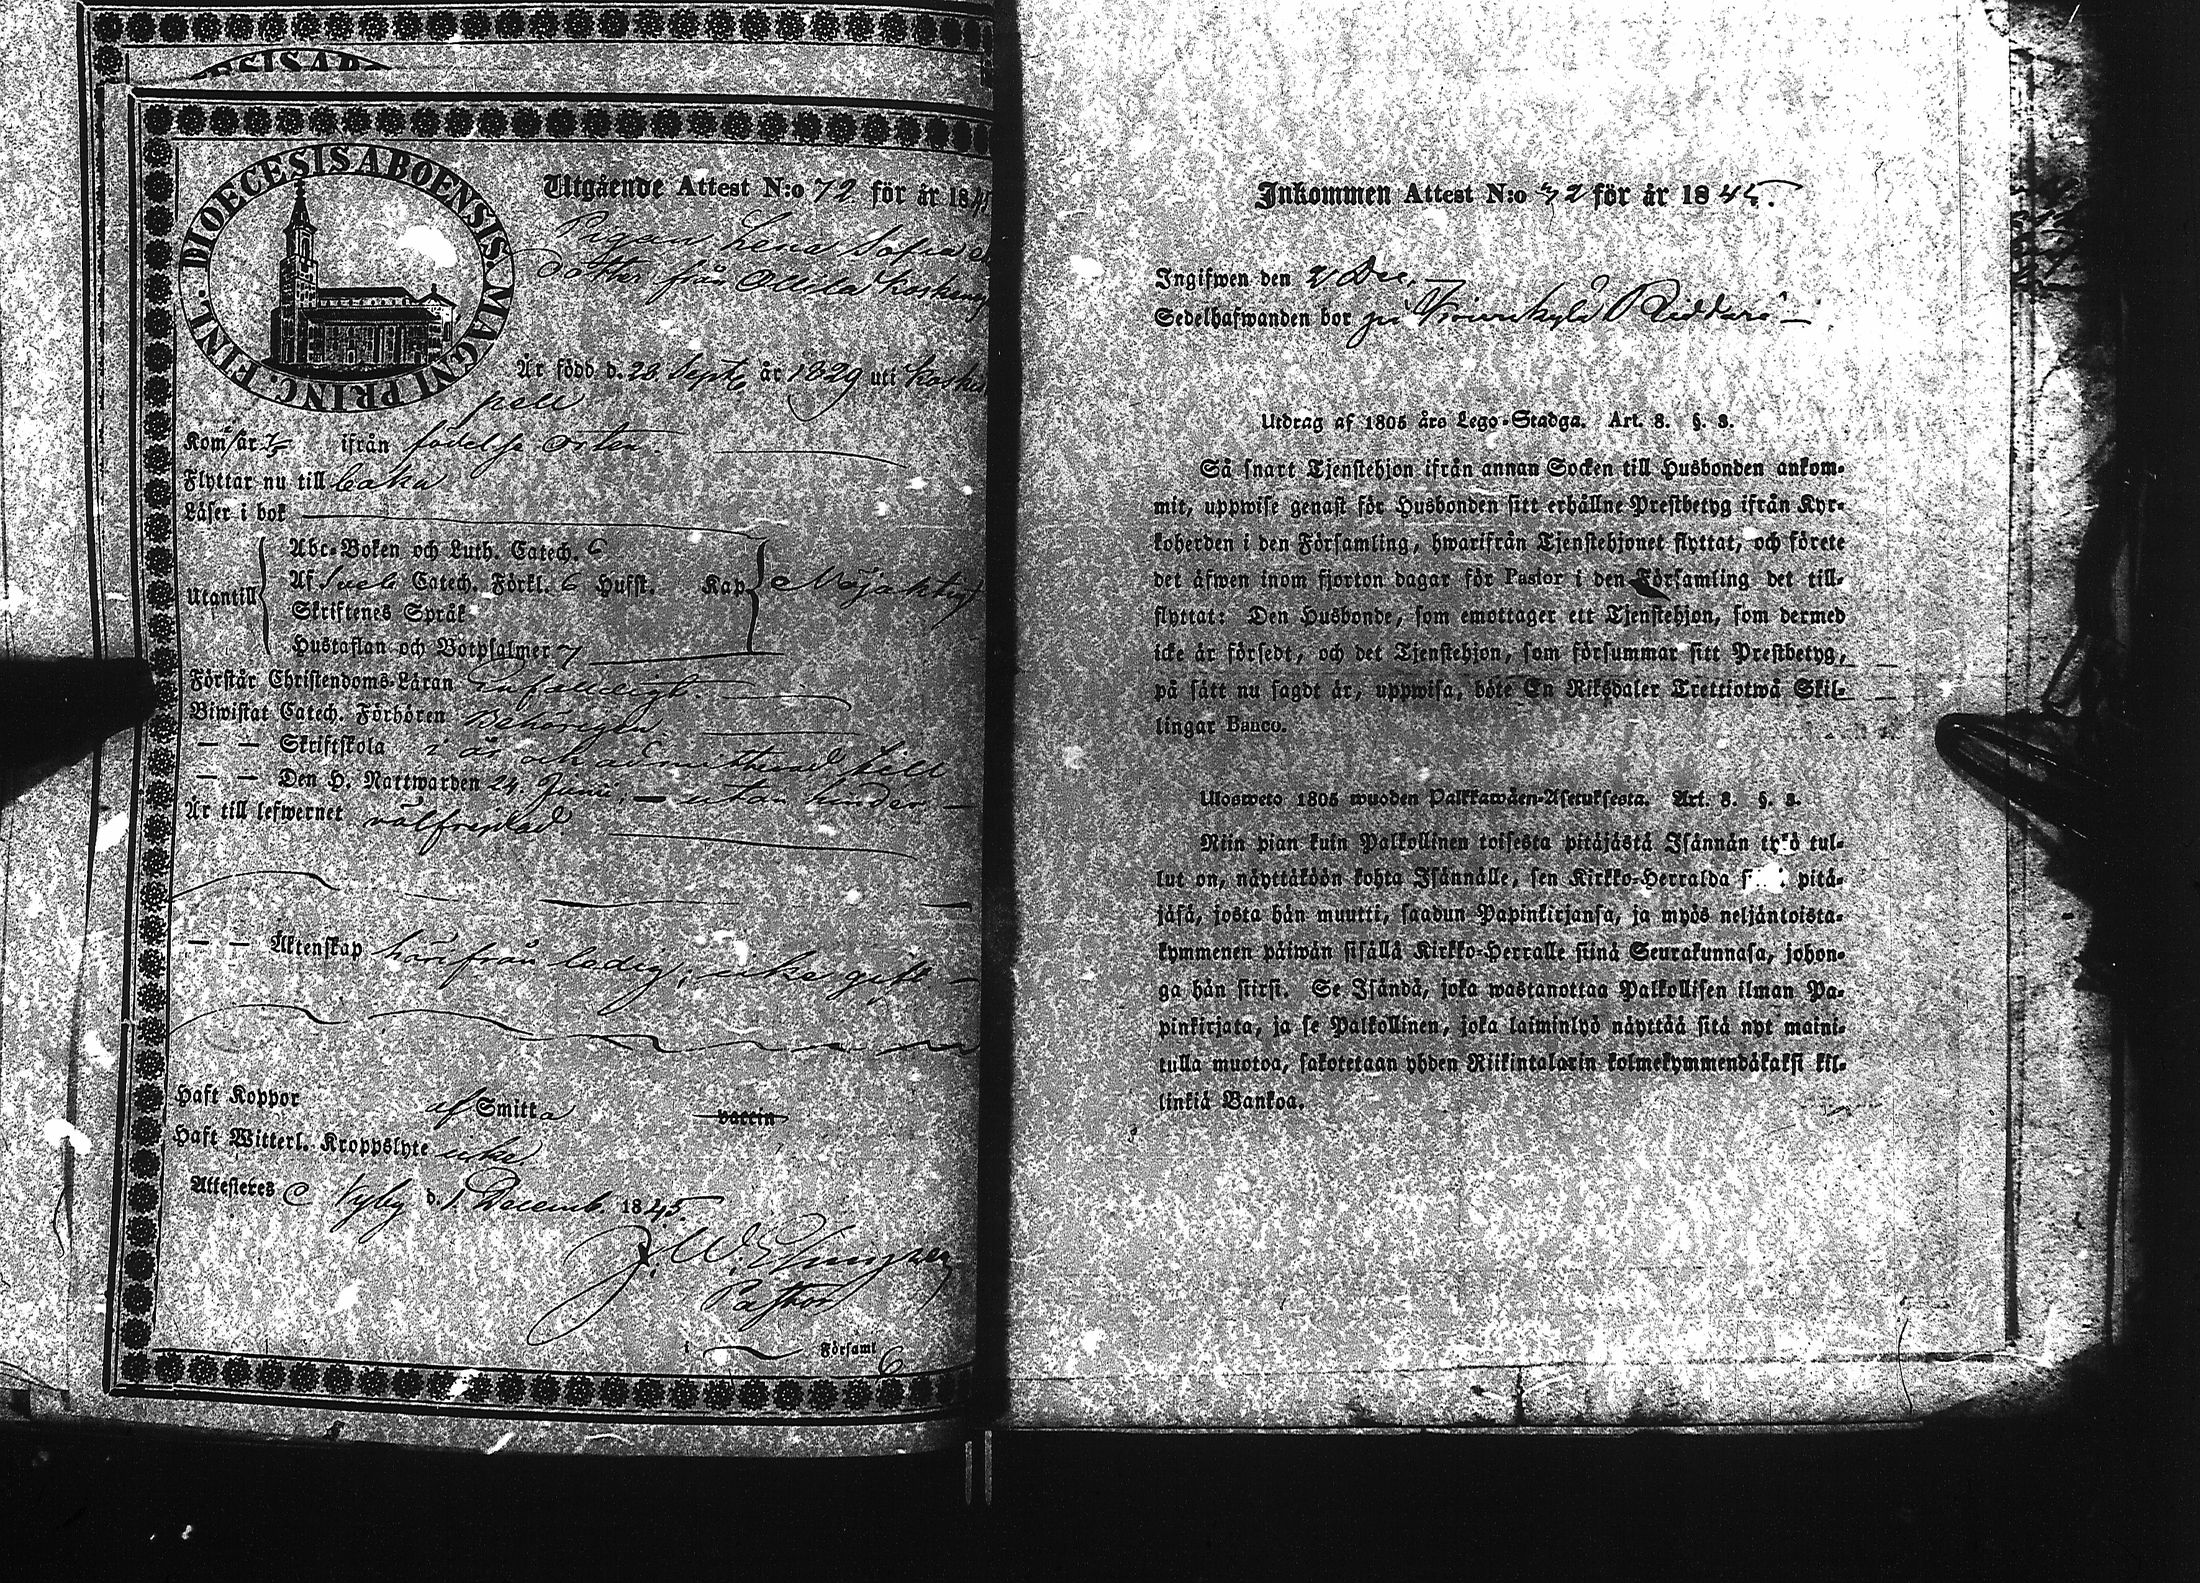 DIOECESIS ABOENSIS MAGNI PRINC. FINL.
Utgående Attest N:o 72 för år 1845
Pigan Lena Sofia
dotter från Ollila
Är född d. 28 Sept. år 1829 uti
pell
Kom/år ifrån födelse orten.
Flyttar nu till
Läser i bok
Utantill
Abc-Boken och Luth. Catech. 6
Af Sveb Catech. Förkl. 6 Husst. Kap.
Nöjaktig
Skriftenes Språk
Hustaflan och Botpsalmer 7
Förstår Christendoms-Läran Enfaldigt.
Biwistat Catech. Förhören Behörigen.
— — Skriftskola i år och admitterad till
— — Den H. Nattwarden 24. Junii. — utan hinder —
Är till lefwernet välfrejdad.
— — Äktenskap härifrån ledig, icke gift —
Haft Koppor af Smitta vaccin
Haft Witterl. Kroppslyte icke.
Attesteres d. 1 Decemb. 1845.
Pastor
i Församl
Inkommen Attest N:o 72 för år 1845.
Ingifwen den 21 Dec.
Sedelhafwanden bor på
Utdrag af 1805 års Lego-Stadga. Art. 8. §. 3.
Så snart Tjenstehjon ifrån annan Socken till Husbonden ankom-
mit, uppwise genast för Husbonden sitt erhållne Prestbetyg ifrån Kyr-
koherden i den Församling, hwarifrån Tjenstehjonet flyttat, och förete
det äfwen inom fjorton dagar för Pastor i den Församling det till-
flyttat: Den Husbonde, som emottager ett Tjenstehjon, som dermed
icke är försedt, och det Tjenstehjon, som försummar sitt Prestbetyg,
på sätt nu sagdt är, uppwisa, böte En Riksdaler Trettiotwå Skil-
lingar Banco.
Ulosweto 1805 wuoden Palkkawäen-Asetuksesta. Art. 8. §. 3.
Niin pian kuin Palkollinen toisesta pitäjästä Isännän tykö tul-
lut on, näyttäköön kohta Isännälle, sen Kirkko-Herralda pitä-
jäsä, josta hän muutti, saadun Papinkirjansa, ja myös neljäntoista-
kymmenen päiwän sisällä Kirkko-Herralle siinä Seurakunnasa, johon-
ga hän siirsi. Se Isändä, joka wastanottaa Palkollisen ilman Pa-
pinkirjata, ja se Palkollinen, joka laiminlyö näyttää sitä nyt maini-
tulla muotoa, sakotetaan yhden Riikintalarin kolmekymmendäkaksi kil-
linkiä Bankoa.